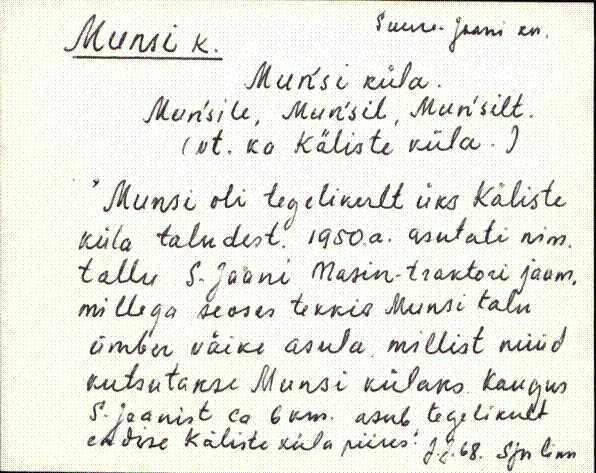 Munsi k.
Suure-Jaani kn.
Muńsi küla.
Muńsile, Muńsil, Muńsilt.
(vt. ka Käliste küla.)
"Munsi oli tegelikult üks Käliste
küla taludest. 1950.a. asutati nim.
tallu S-Jaani Masin-traktori jaam,
millega seoses tekkis Munsi talu
ümber väike asula, millist nüüd
kutsutakse Munsi külaks. Kaugus
S-Jaanist ca 6 km. asub tegelikult
endise Käliste küla piires".
68.